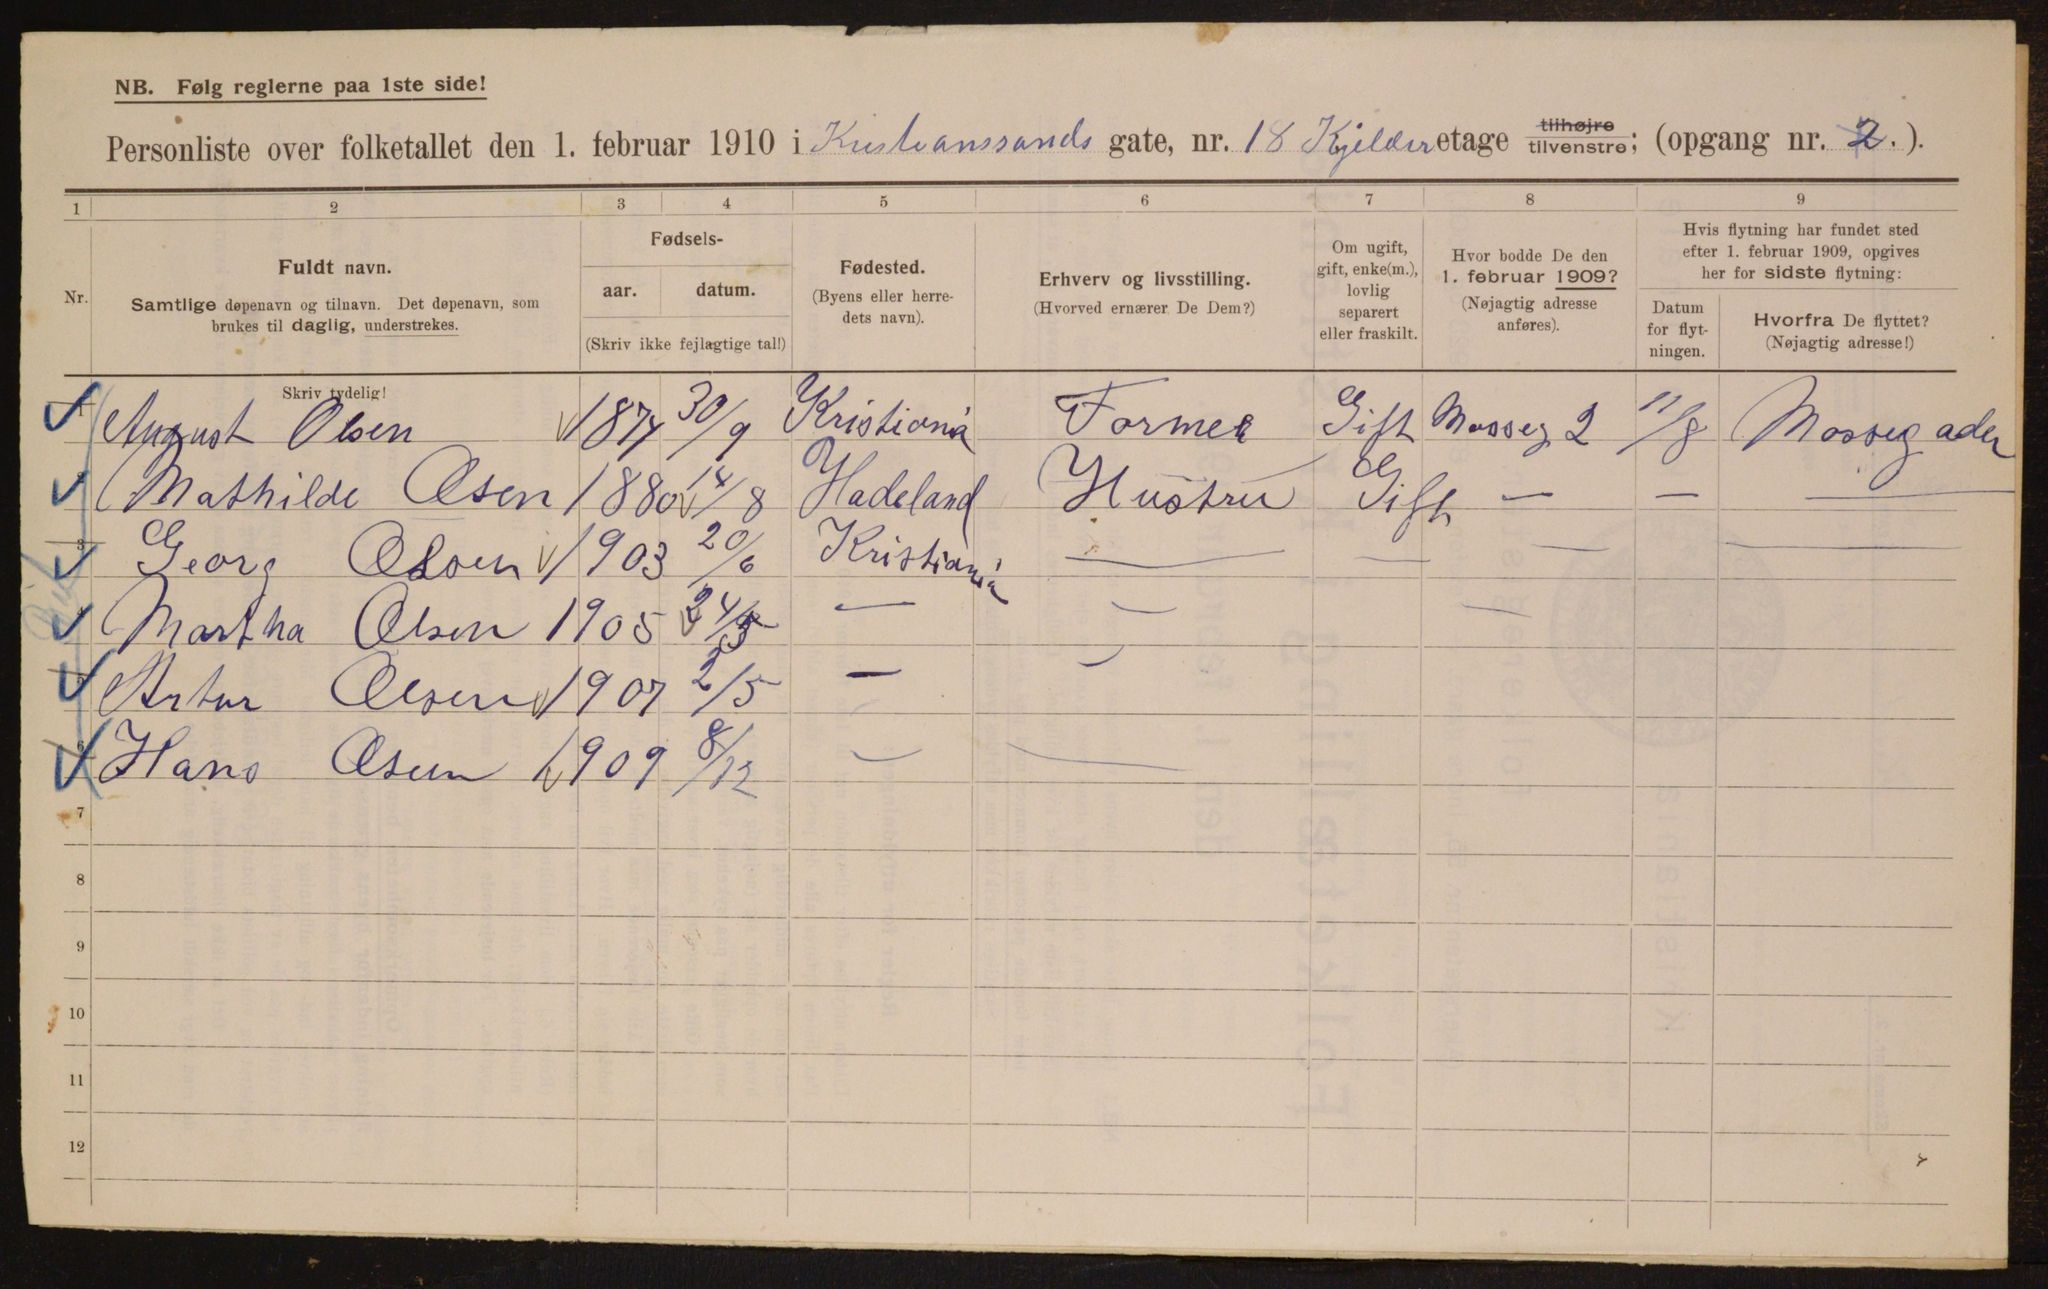 NB. Følg reglerne paa 1ste side!
Personliste over folketallet den 1. februar 1910 i Kristianssands gate, nr. 18 Kjelder etage tilhøjre tilvenstre; (opgang nr. 2.).
1 2 3 4 5 6 7 8 9
Nr.
Fuldt navn.
Samtlige døpenavn og tilnavn. Det døpenavn, som
brukes til daglig, understrekes.
Fødsels-
aar. datum.
(Skriv ikke fejlagtige tal!)
Fødested.
(Byens eller herre-
dets navn).
Erhverv og livsstilling.
(Hvorved ernærer De Dem?)
Om ugift,
gift, enke(m.),
lovlig
separert
eller fraskilt.
Hvor bodde De den
1. februar 1909?
(Nøjagtig adresse
anføres).
Hvis flytning har fundet sted
efter 1. februar 1909, opgives
her for sidste flytning:
Datum
for flyt-
ningen.
Hvorfra De flyttet?
(Nøjagtig adresse!)
Skriv tydelig!
1 August Olsen 1874 30/9 Kristiania Former Gift Mosseg 2 11/8 Mossegaden
2 Mathilde Olsen 1880 14/8 Hadeland Hustru Gift — — —
3 Georg Olsen 1903 20/6 Kristiania — — — —
4 Martha Olsen 1905 24/3 — — —
5 Artur Olsen 1907 2/5 — —
6 Hans Olsen 1909 8/12 — —
7
8
9
10
11
12